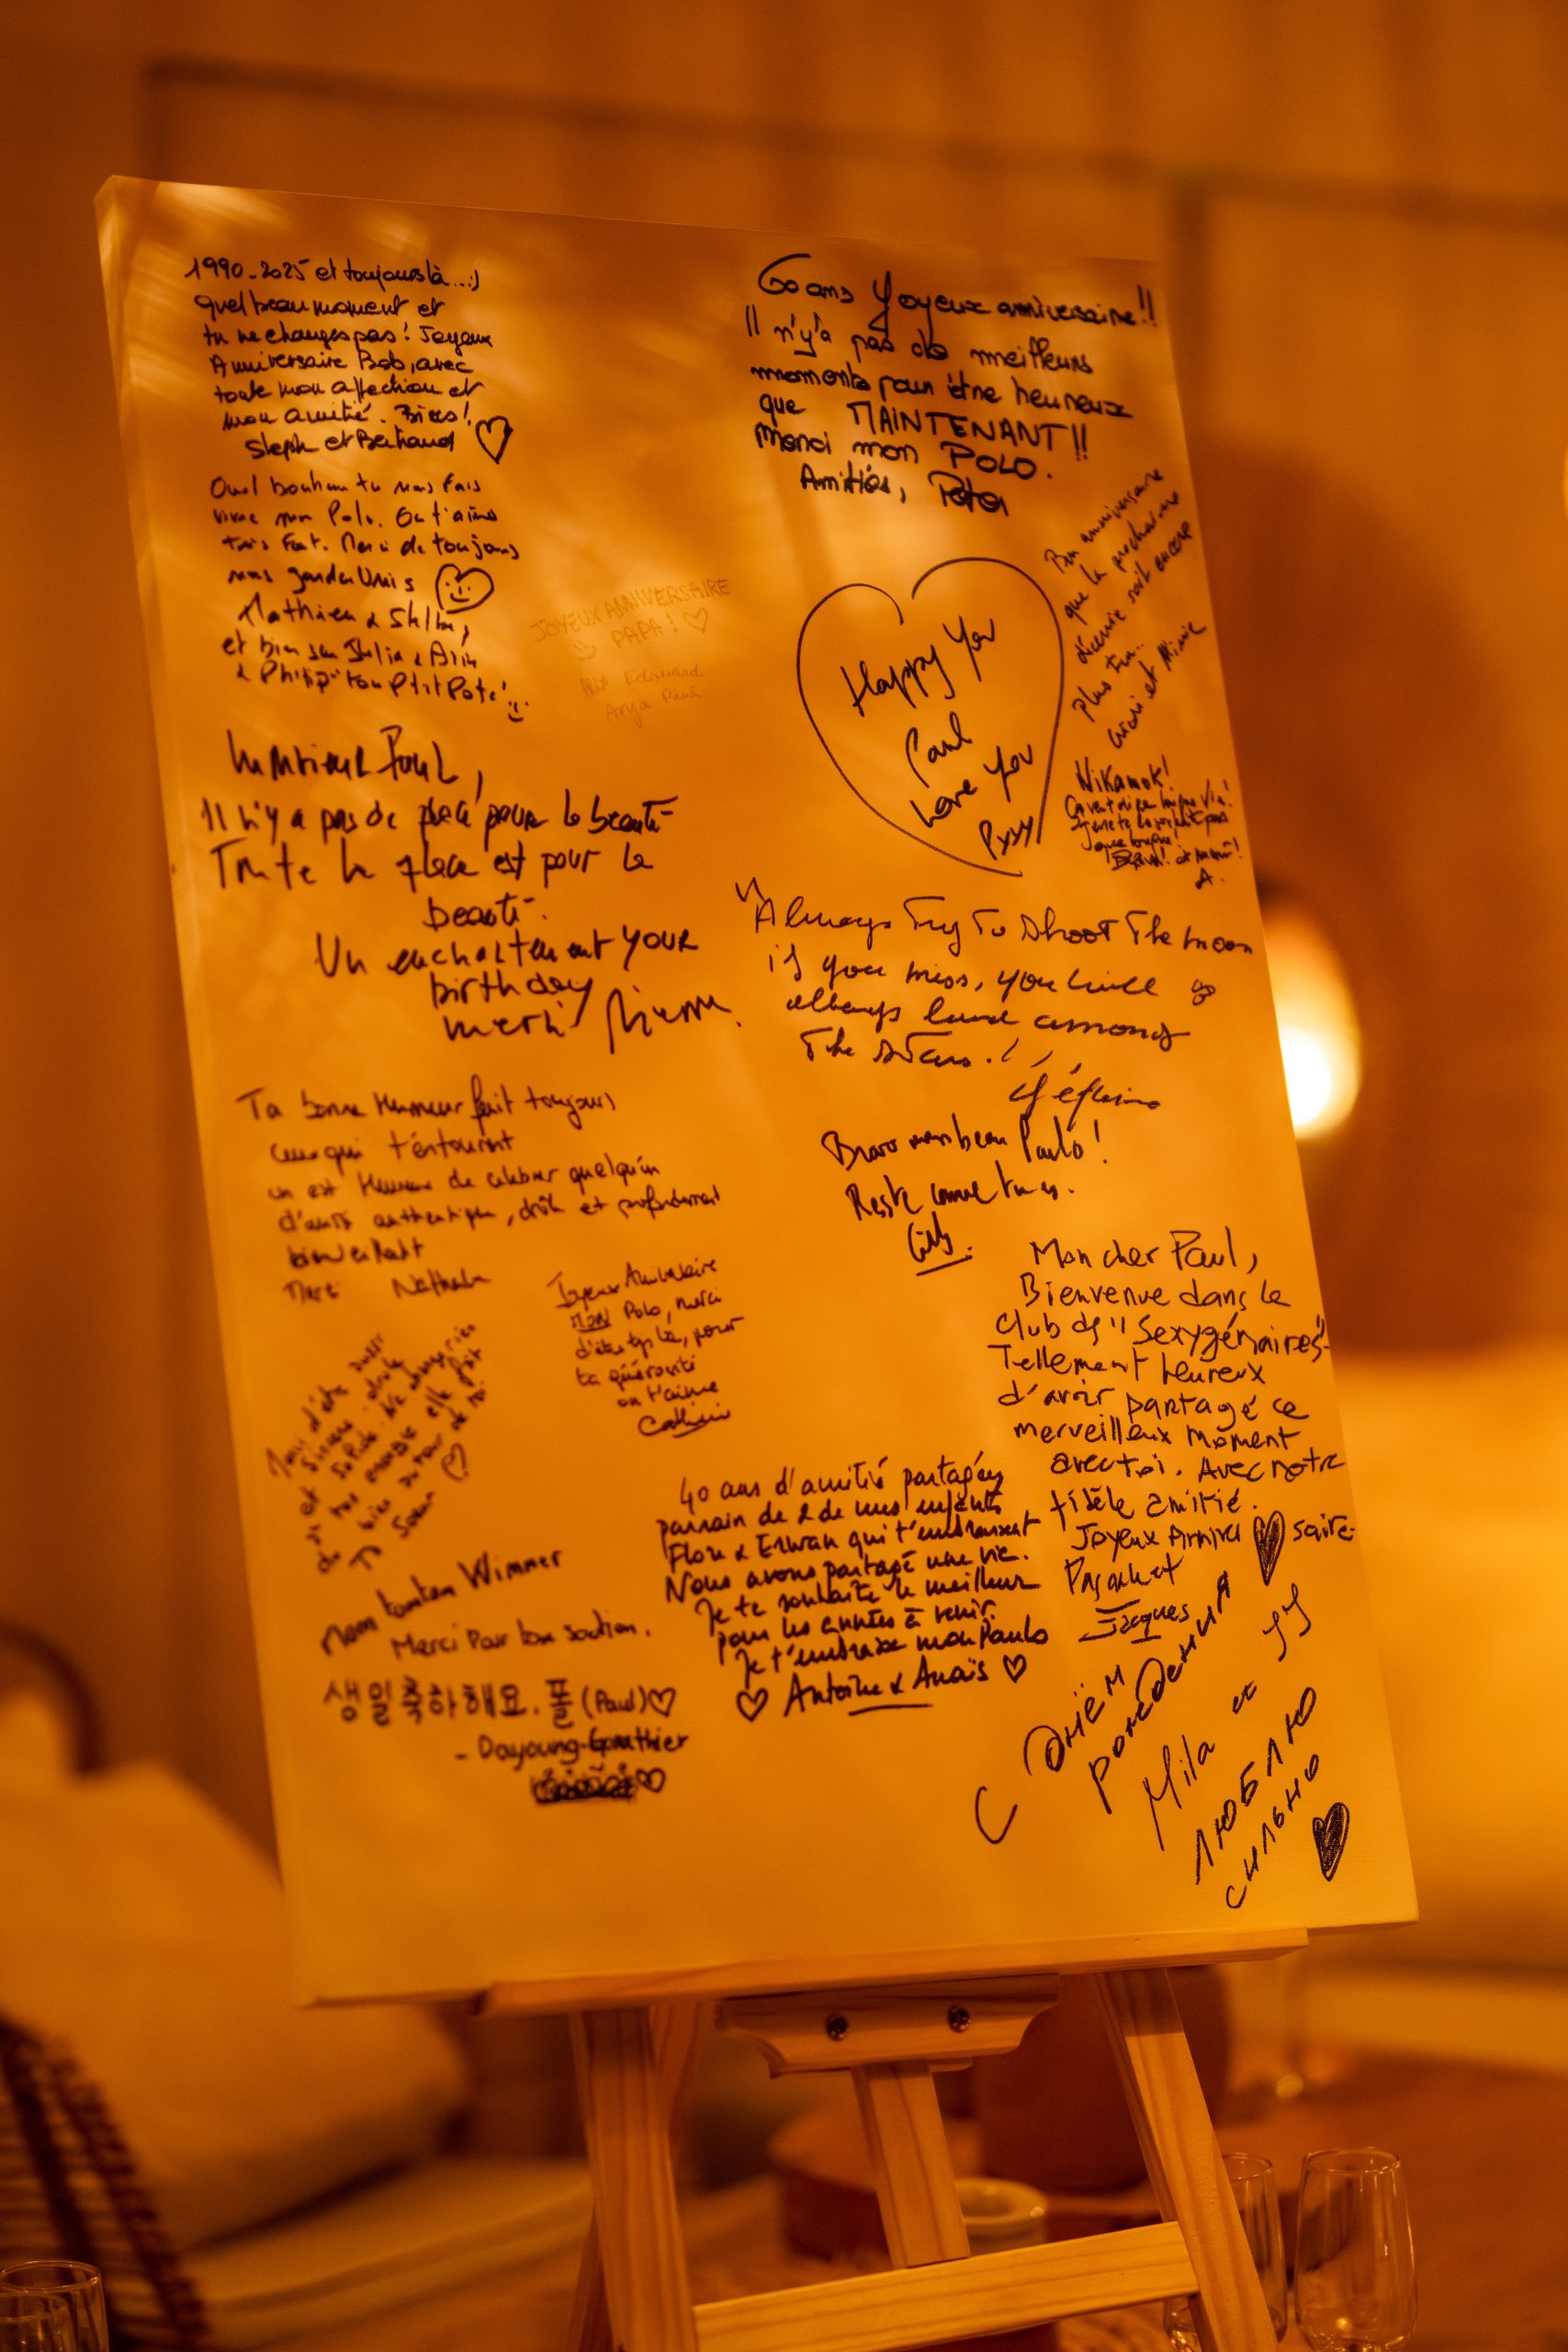 1990-2025 et toujours là...:)
quel beau moment et
tu ne changes pas! Joyeux
Anniversaire Bob, avec
toute mon affection et
mon amitié. Bises!
Steph et Bertrand
Quel bonheur tu nous fais
vivre mon Polo. On t'aime
très fort. Merci de toujours
nous garder Unis
Mathieu &
et bien sur Julia &
& Philipp' ton Ptit Pote!
JOYEUX ANNIVERSAIRE
PAPA!
Edouard
Anya Paul
Paul,
Il n'y a pas de place pour la beauté
Toute la place est pour la
beauté.
Un enchantement YOUR
birthday
merci
Ta bonne Humeur fait toujours
ceux qui t'entourent
on est Heureux de célébrer quelqu'un
d'aussi authentique, drôle et profondément
bienveillant
Marc Nathalie
Joyeux Anniversaire
MON Polo, merci
d'être tjs là, pour
ta générosité
on t'aime
Merci d'être aussi
et sincère, drôle
si
de tes elle fait
bien autour de toi
Mon tonton Wimmer
Merci Pour ton soutien.
생일축하해요. 폴 (Paul)
- Dayoung-Gauthier
60 ans Yoyeux anniversaire!!
Il n'y'a pas de meilleurs
moments pour être heureux
que MAINTENANT!!
Merci mon POLO.
Amitiés, Peter
Bon anniversaire
que la prochaine
décennie soit encore
plus fun..
et Mimie
Happy You
Paul
Love You
Pyyy
Nikamok!
"Always Try To Shoot The moon
if you miss, you will go
always land among
The Stars."
Bravo mon beau Paulo!
Reste comme tu es.
Mon cher Paul,
Bienvenue dans le
Club des "Sexygénaires"
Tellement heureux
d'avoir partagé ce
merveilleux moment
avec toi. Avec notre
fidèle amitié.
Joyeux Anniver saire
Pascal et
Jacques
40 ans d'amitié partagées
parrain de 2 de mes enfants
Flore & Erwan qui t'embrassent
Nous avons partagé une vie.
Je te souhaite le meilleur
pour les années à venir.
Je t'embrasse mon Paulo
Antoine & Anaïs
С Днём
рождения
Mila et JJ
ЛЮБЛЮ
СИЛЬНО